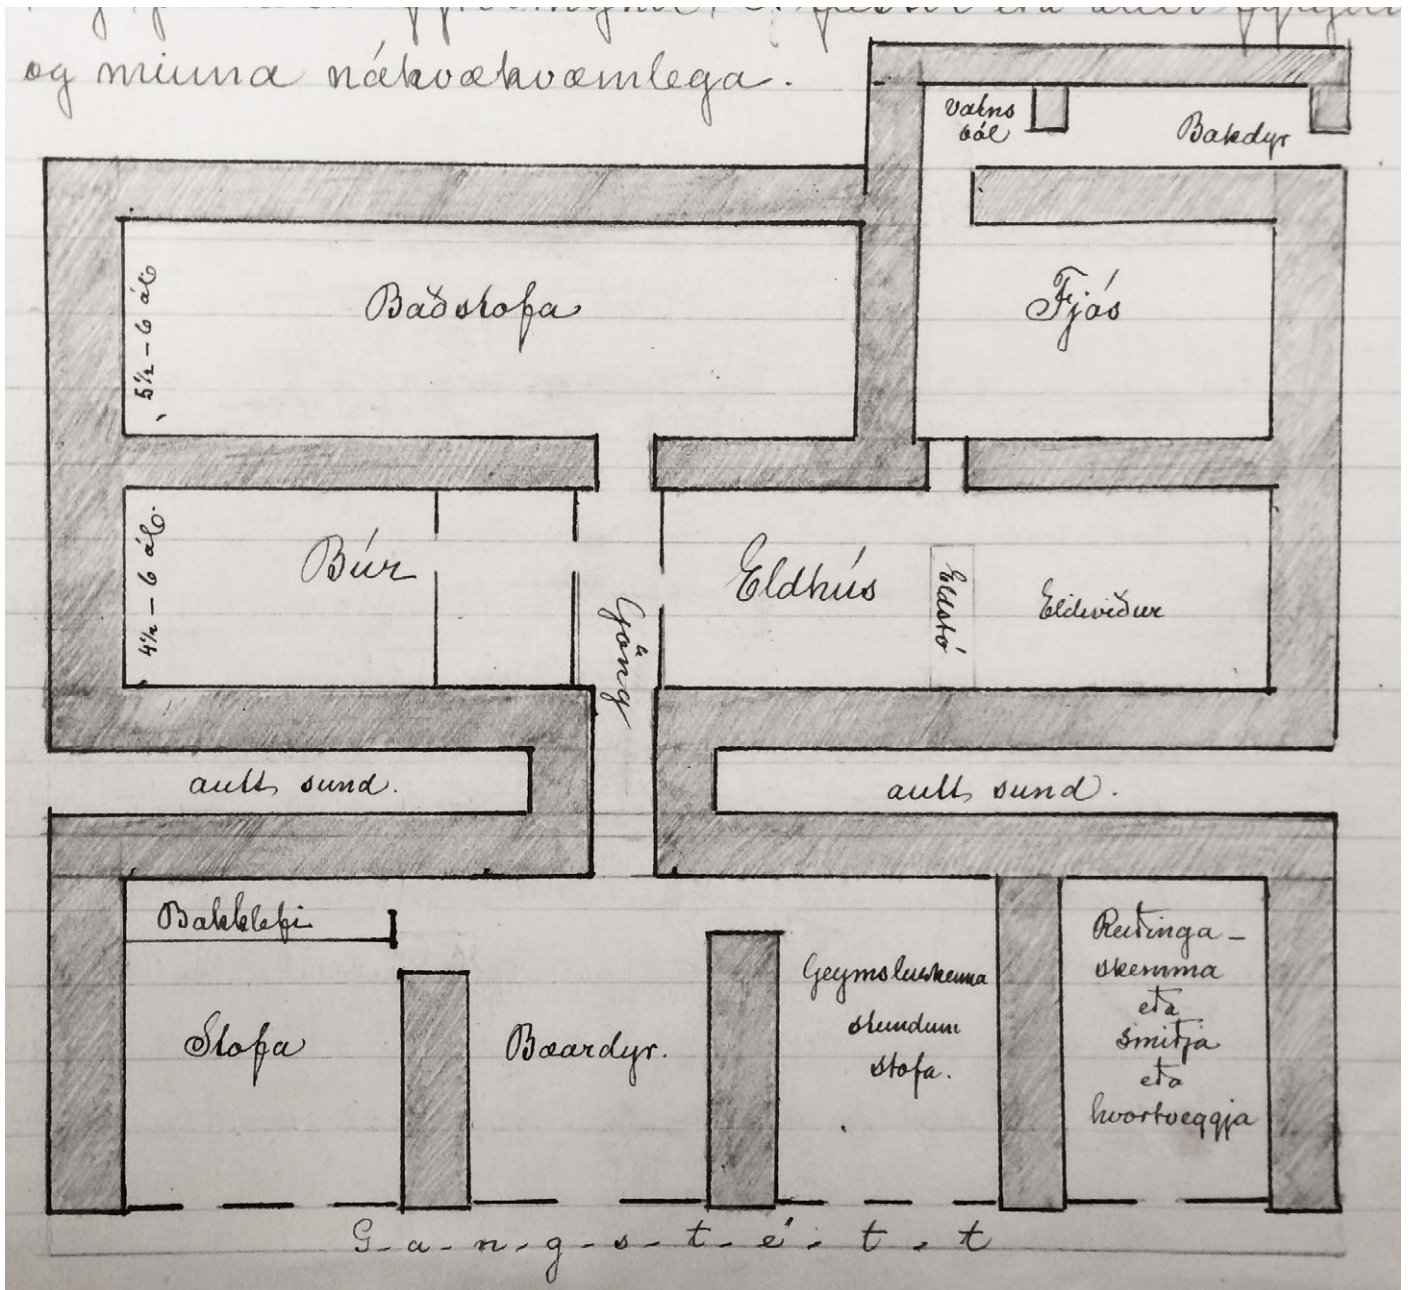 og minna nákvækvæmlega.
Vatns
ból
Bakdyr
Baðstofa
5½ – 6 ál.
Fjós
Búr
4½ – 6 ál.
Göng
Eldhús
Eldstó
Eldiviður
autt sund.
autt sund.
Bakklefi
Stofa
Bæardyr.
Geymsluskemma
stundum
stofa.
Reiðinga-
skemma
eða
smiðja
eða
hvortveggja
G-a-n-g-s-t-é-t-t